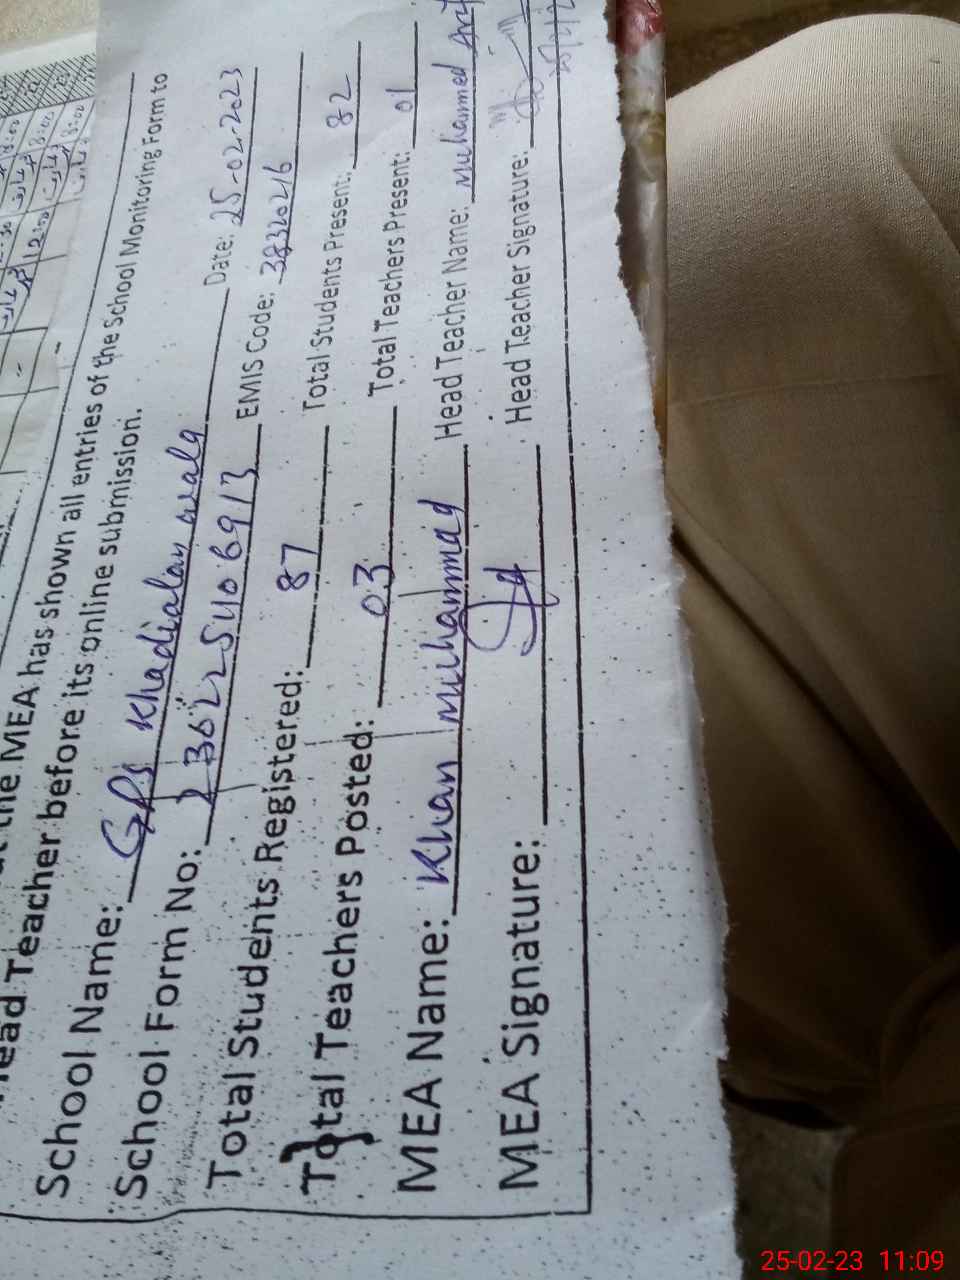 Head Teacher before its online submission.
the MEA has shown all entries of the School Monitoring Form to
School Name: GPS Khadialan wala Date: 25-02-2023
School Form No: 23022540 6913 EMIS Code: 38320216
Total Students Registered: 87 Total Students Present: 82
Total Teachers Posted: 03 Total Teachers Present: 01
MEA Name: Khan Muhammad Head Teacher Name: Muhammed
MEA Signature: Head Teacher Signature:
25-02-23 11:09